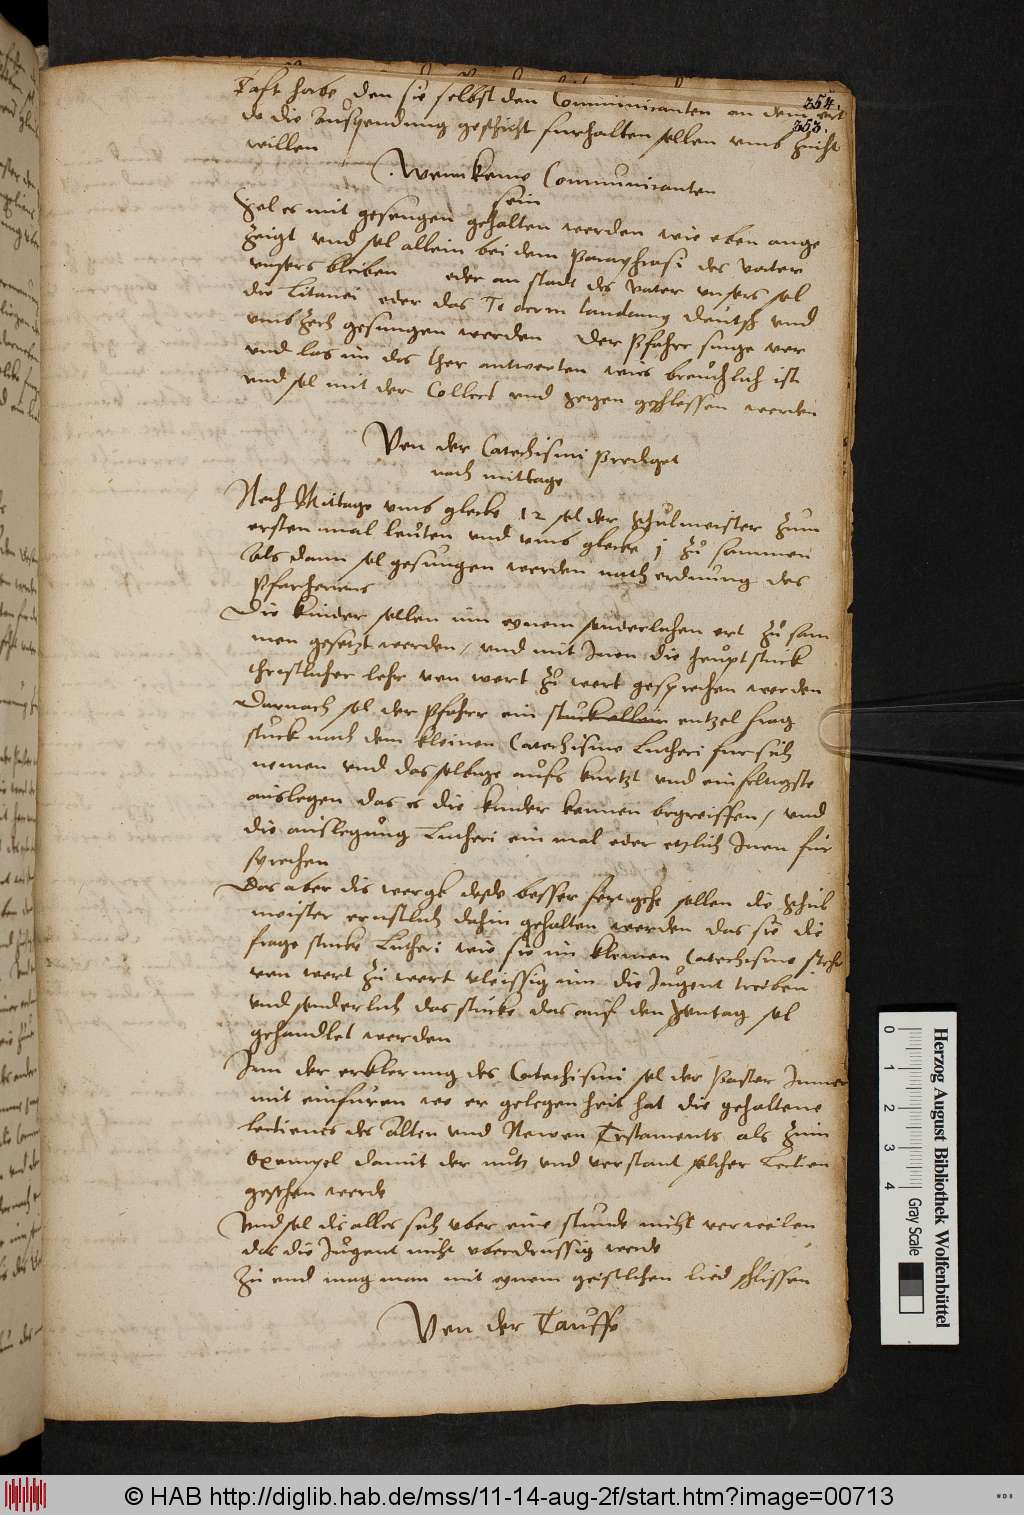 354.
353.
Taft habe den sie selbst den Communicanten an dem ort
do die Außpendung geschicht furhalten sollen umb Zucht
willen
Wenn keine Communicanten
sein
Sol es mit gesengen gehalten werden wie oben ange
Zeigt vnd sol allein bei dem Paraphrasi des vater
vnsers bleiben oder an stadt des vater vnsers sol
die Litanei oder das Te deum laudamus deutsch vnd
vmbZech gesungen werden Der Pfahrr singe vor
vnd las im das Chor antworten wie breuchlich ist
vnd sol mit der Collect vnd segen geschlossen werden
Von der Catechismi Prediget
nach mittage
Nach Mittage vmb glocke 12 sol der Schulmeister Zum
ersten mal leuten vnd vmb glocke j Zu sammen
Als dann sol gesungen werden nach ordnung des
Pfarherrens
Die kinder sollen inn eynem sonderlichen ort Zu sam
men gesetzt werden / vnd mit Inen die heuptstuck
christlicher lehr von wort Zu wort gesprochen werden
Darnach sol der Pfahrr ein stuck allein entzel frag
stuck nach dem kleinen Catechismo Lutheri fur sich
nemen vnd dasselbige aufs kurtzt vnd einfeltigste
auslegen das es die kinder konnen begreiffen / vnd
die auslegung Lutheri ein mal oder etzlich Inen für
sprechen
Das aber dis wergk deste besser fort gehe sollen die Schul
meister ernstlich dahin gehalten werden das sie die
frage stucke Lutheri wie sie im kleinen Catechismo steht
von wort Zu wort vleissig inn die Jugent treiben
vnd sonderlich das stucke das auf den Sontag sol
gehandlet werden
Inn der erklerung des Catechismi sol der Pastor Immer
mit einfuren wo er gelegenheit hat die gehaltene
lectiones des Alten vnd Newen Testaments als Zum
Exempel damit der nutz vnd verstant solcher Lection
gesehen werde
Vnd sol dis alles sich vber eine stunde nicht verweilen
das die Jugent nicht vberdrussig werde
Zu end mag man mit eynem geistlichen lied schlissen
Von der Tauffe
Herzog August Bibliothek Wolfenbüttel
0 1 2 3 4
Gray Scale
© HAB http://diglib.hab.de/mss/11-14-aug-2f/start.htm?image=00713